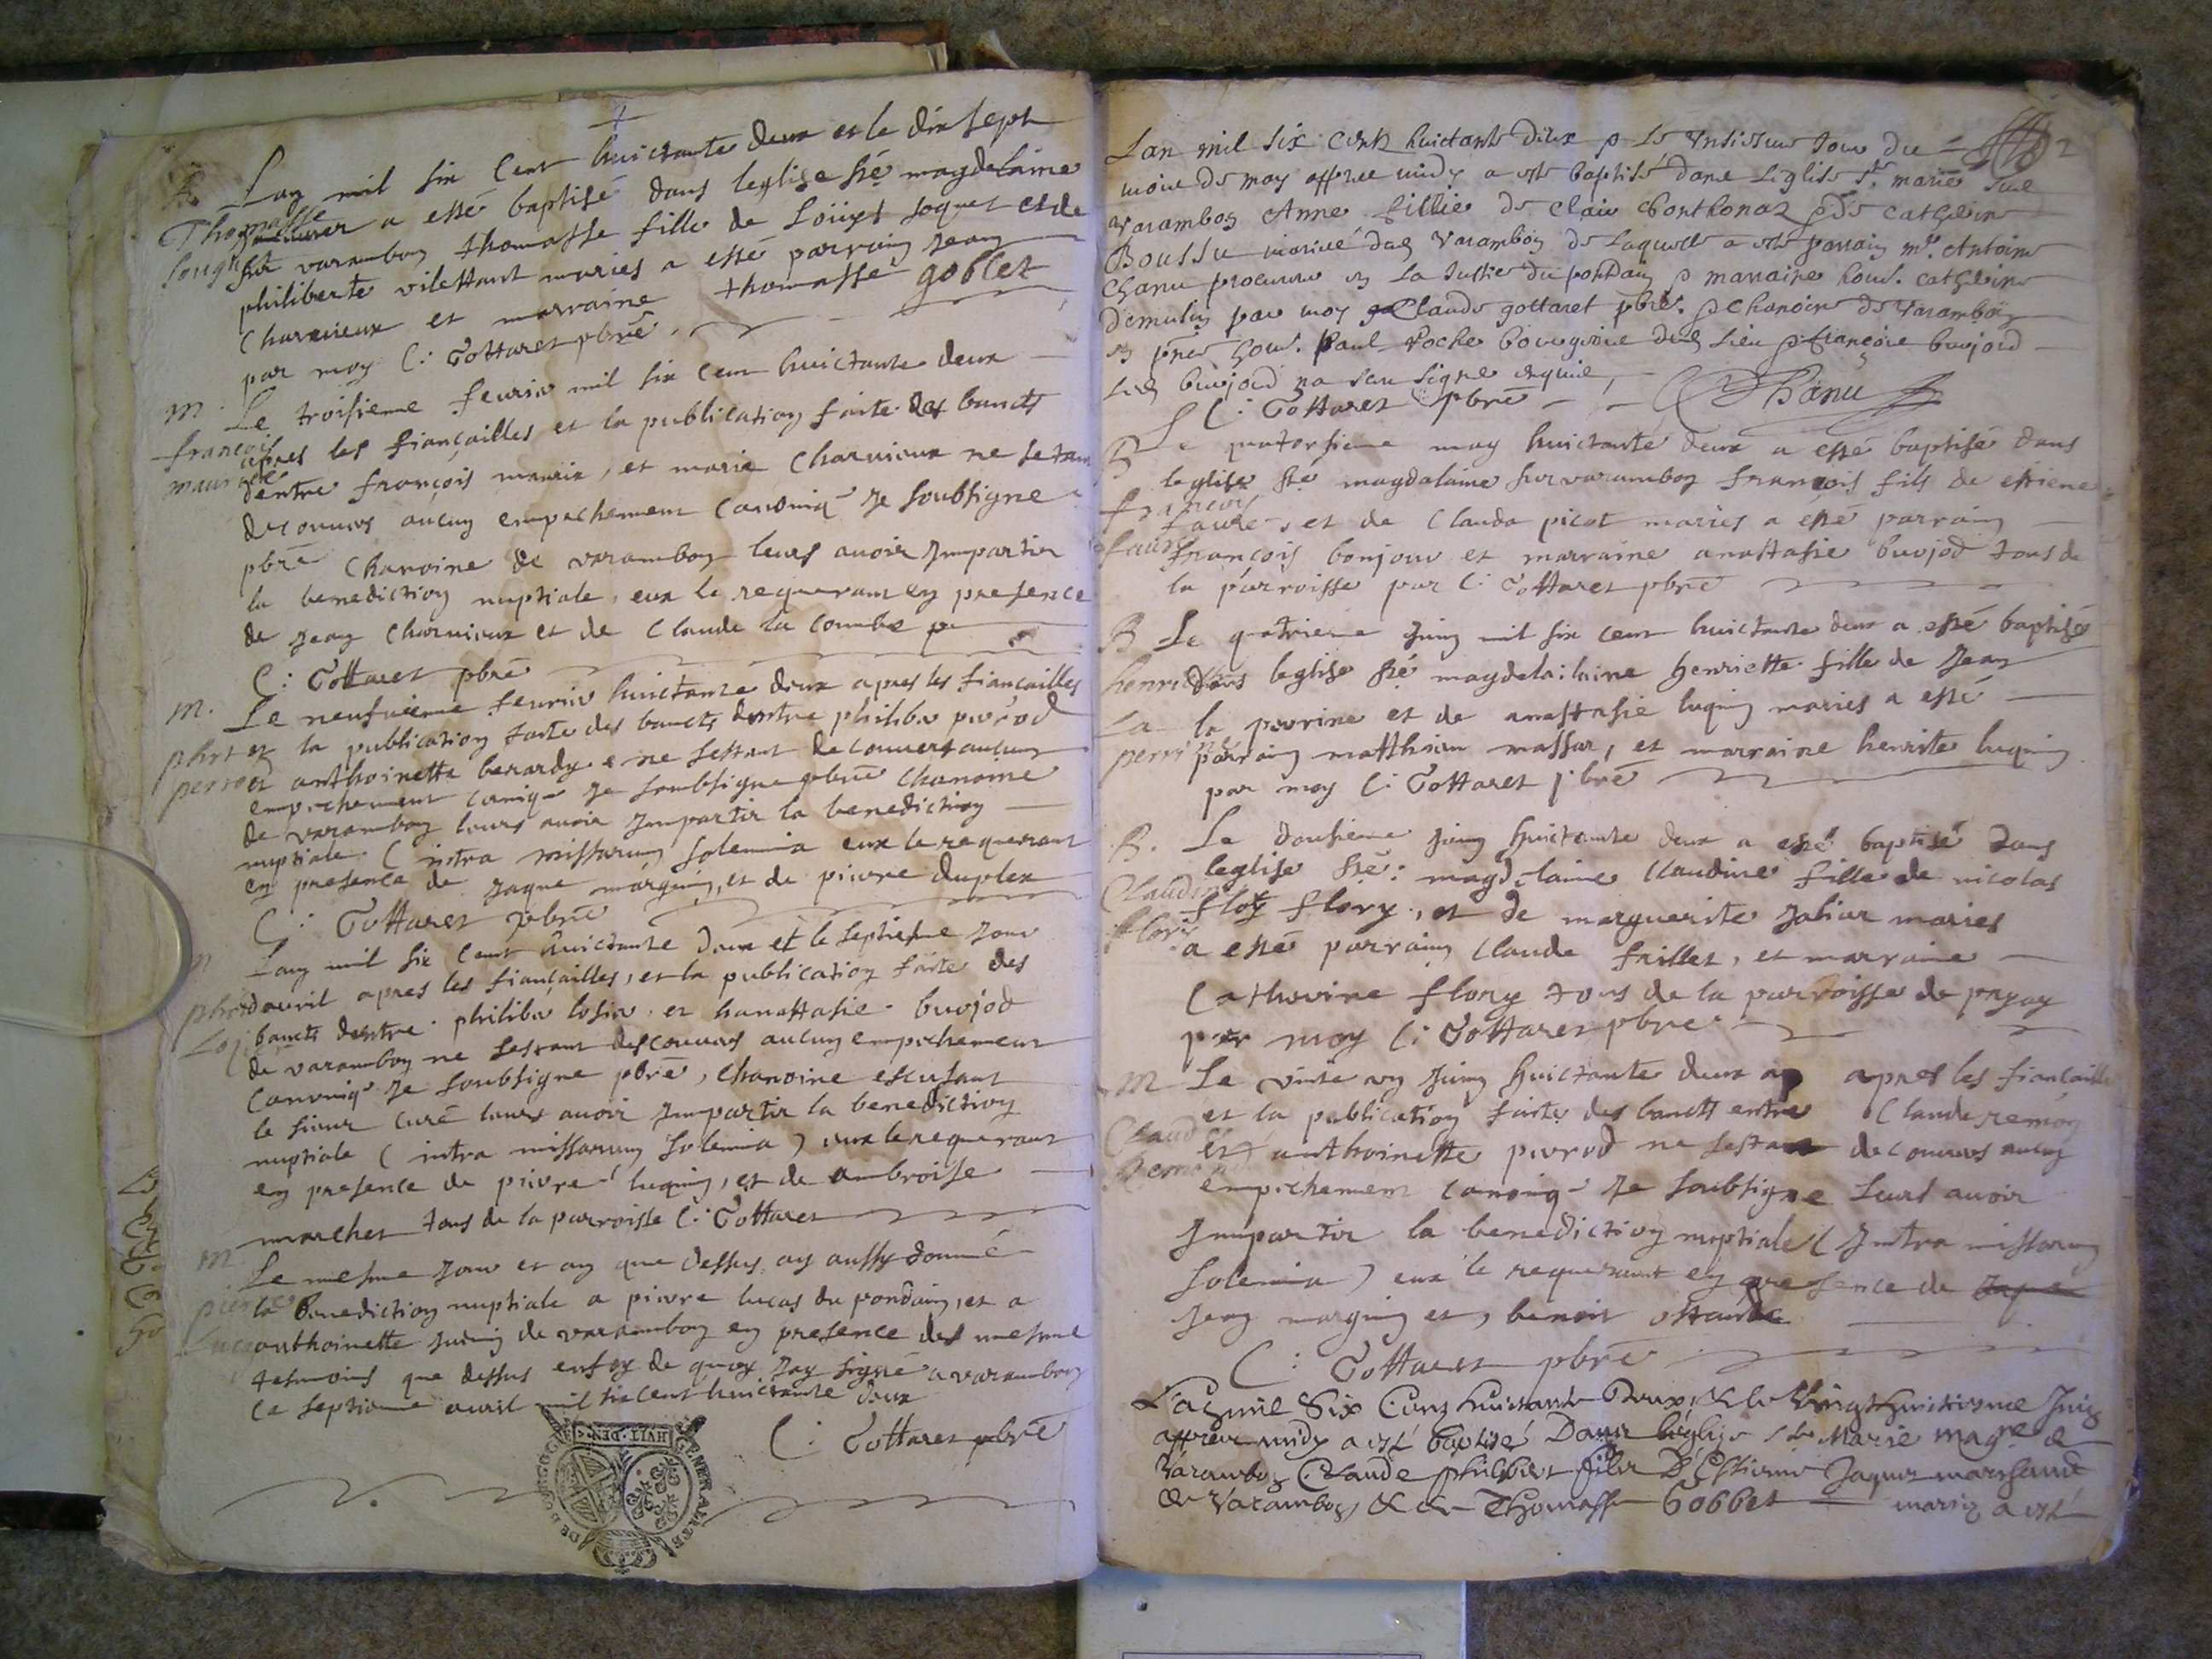 Lan mil six Cent huictante deux et le dix sept
a esté baptisé dans leglise ste magdelaine
sur varambon thomasse fille de Loüys soquet et de
philiberte vilettant maries a esté parrain Jean
Charvieux et marraine thomasse goblet
par moy C: Gottaret pbre
m. Le troisieme feurier mil six cent huictante deux
francois apres les fiançailles et la publication faite des bancts
dentre françois maurix, et marie Charvieux ne sestant
decouvers aucun empechement canoniq Je soubsigne
pbre Chanoine de varambon leurs avoir Jmpartir
la benediction nuptiale, eux le requerant en presence
de Jean Charvieux et de Claude la combe
C: Gottaret pbre
m. Le neufvieme feurier huictante deux apres les fiançailles
et la publication faite des bancts dentre philiber perrod
et anthoinette berardy ne sestant decouvert aucun
empechement canoniq Je soubsigne pbre chanoine
de varambon leurs avoir Jmpartir la benediction
nuptiale (intra missarum solemnia eux le requerant
en presence de Jaque marguin, et de pierre duplex
C: Gottaret pbre
m Lan mil six cent huictante deux et le septieme Jour
davril apres les fiançailles, et la publication faite des
bancts dentre philiber losier et hanastasie buvjod
de varambon ne sestant descouvers aucun empechement
canoniq Je soubsigne pbre, chanoine escusant
le sieur curé leurs avoir Jmpartir la benediction
nuptiale (intra missarum solemnia) eux le requérant
en presence de pierre luquin, et de ambroise
marchet tous de la parroisse C: Gottaret
m Le mesme Jour et an que dessus, ay aussy donné
la Benediction nuptiale a pierre lucas du pondain, et a
anthoinette Juenin de varambon en presence des mesme
tesmoins que dessus en foy de quoy Jay signé a varambon
ce septieme avril mil six cent huictante deux
C: Gottaret pbre
GENERALITE DE BOURGOGNE
HVIT·DEN·
Lan mil six cent huictante deux & le unsiesme Jour du
mois de may apprès midy a esté baptisé dans Leglise Ste marie sur
varambon Anne fillie de Claude Bonthonaz & de Catherine
Boussu marié dud varambon de Laquelle a esté parrain mre Antoine
Chanu procureur en La Justice du pondain & marraine hon. Catherine
Demulin par moy Claude gottaret pbre & Chanoine de varambon
en pnce hon. Paul Roche bourgeois dud Lieu & françois buvjod
Led buvjod na sceu signe enquis,
C: Gottaret pbre Chanu
B Le quatorsieme may huictante deux a esté baptisé dans
leglise ste magdalaine sur varambon françois fils de estiene
francois faure, et de Clauda picot maries a esté parrain
faure françois bonjour et marraine anastasie buvjod tous de
la parroisse par C: Gottaret pbre
B Le quatrieme Juin mil six cent huictante deux a esté baptisé
dans leglise ste magdelailaine henriette fille de Jean
la perrine et de anastasie luquin maries a esté
parrain matthieu massar, et marraine henriete luquin
par moy C: Gottaret pbre
B. Le dousieme Juin huictante deux a esté baptisé dans
leglise ste: magdelaine Claudine fille de nicolas
flory, et de marguerite Joliar maries
a esté parrain Claude frillet, et marraine
Catherine flory tous de la parroisse de prian
par moy C: Gottaret pbre
m Le vinte un Juin huictante deux apres les fiançailles
et la publication faite des banctt entre Claude remon
et anthoinette perrod ne sestant decouvers aucun
empechement canoniq Je soubsigne leurs avoir
Jmpartir la benediction nuptiale (Jntra missarum
solemnia) eux le requerant en presence de
Jean marguin et, benoit
C: Gottaret pbre
Lan mil Six Cens huictante Deux, & le vingt huictiesme Juin
apprès midy a esté baptisé Dans leglise Ste Marie magne de
Varambon Claude philibert filz D'Estienne Jaques marchand
de Varambon, & de Thomasse Gobbet mariez a esté